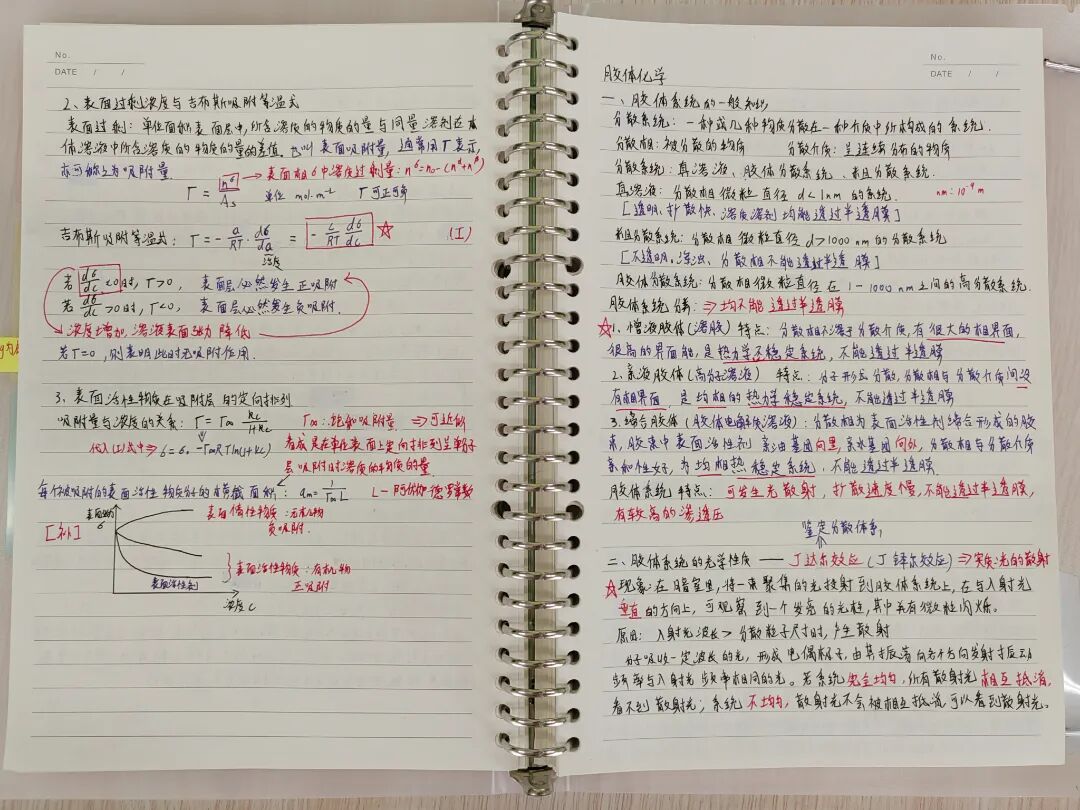 No.
DATE / /
2、表面过剩浓度与吉布斯吸附等温式
表面过剩：单位面积表面层中,所含溶质的物质的量与同量溶剂在本
体溶液中所含溶质的物质的量的差值。也叫表面吸附量，通常用Γ表示,
亦可称之为吸附量.
Γ = n^σ/As → 表面相σ中溶质过剩量: n^σ=n₀-(n^α+n^β)
单位 mol·m⁻² Γ可正可负
吉布斯吸附等温式: Γ = - a/RT · dσ/da = - c/RT dσ/dc ☆ (I)
浓度
若 dσ/dc <0时, Γ>0, 表面层必然发生正吸附
若 dσ/dc >0时, Γ<0, 表面层必然发生负吸附.
→浓度增加,溶液表面张力降低
若Γ=0,则表明此时无吸附作用.
3、表面活性物质在吸附层的定向排列
吸附量与浓度的关系: Γ=Γ∞ kc/1+kc Γ∞:饱和吸附量 ⇒可近似
代入(I)式⇒ σ=σ₀-Γ∞RTln(1+kc) 看成是在单位表面上定向排列呈单分子
层吸附时溶质的物质的量
每个被吸附的表面活性物质分子的横截面积: am=1/Γ∞L L-阿伏加德罗常数
[补]
表面张力
σ
表面惰性物质:无机物
负吸附.
}表面活性物质:有机物
正吸附
表面活性剂
浓度c
No.
DATE / /
胶体化学
一、胶体系统的一般知识
分散系统：一种或几种物质分散在一种介质中所构成的系统.
分散相:被分散的物质 分散介质:呈连续分布的物质
分散系统：真溶液、胶体分散系统、粗分散系统.
真溶液：分散相微粒直径 d<1nm的系统. nm:10⁻⁹m
[透明、扩散快、溶质溶剂均能透过半透膜]
粗分散系统：分散相微粒直径d>1000nm的分散系统
[不透明、浑浊、分散相不能透过半透膜]
胶体分散系统：分散相微粒直径在1-1000nm之间的高分散系统.
胶体系统分类:⇒均不能透过半透膜
☆1、憎液胶体(溶胶)特点：分散相不溶于分散介质,有很大的相界面,
很高的界面能,是热力学不稳定系统，不能透过半透膜
2.亲液胶体(高分子溶液) 特点：分子形式分散,分散相与分散介质间没
有相界面 是均相的热力学稳定系统,不能透过半透膜
3.缔合胶体(胶体电解质溶液)：分散相为表面活性剂缔合形成的胶
束,胶束中表面活性剂亲油基团向里,亲水基团向外,分散相与分散介质
亲和性好,为均相热稳定系统，不能透过半透膜
胶体系统特点:可发生光散射，扩散速度慢,不能透过半透膜,
有较高的渗透压
鉴定分散体系
二、胶体系统的光学性质 —— 丁达尔效应(丁铎尔效应)⇒实质:光的散射
☆现象:在暗室里,将一束聚集的光投射到胶体系统上,在与入射光
垂直的方向上，可观察到一个发亮的光柱,其中并有微粒闪烁。
原因：入射光波长>分散粒子尺寸时,产生散射
分子吸收一定波长的光，形成电偶极子,由其振荡向各个方向发射于振动
频率与入射光频率相同的光。若系统完全均匀,所有散射光相互抵消,
看不到散射光；系统不均匀,散射光不会被相互抵消,可以看到散射光。